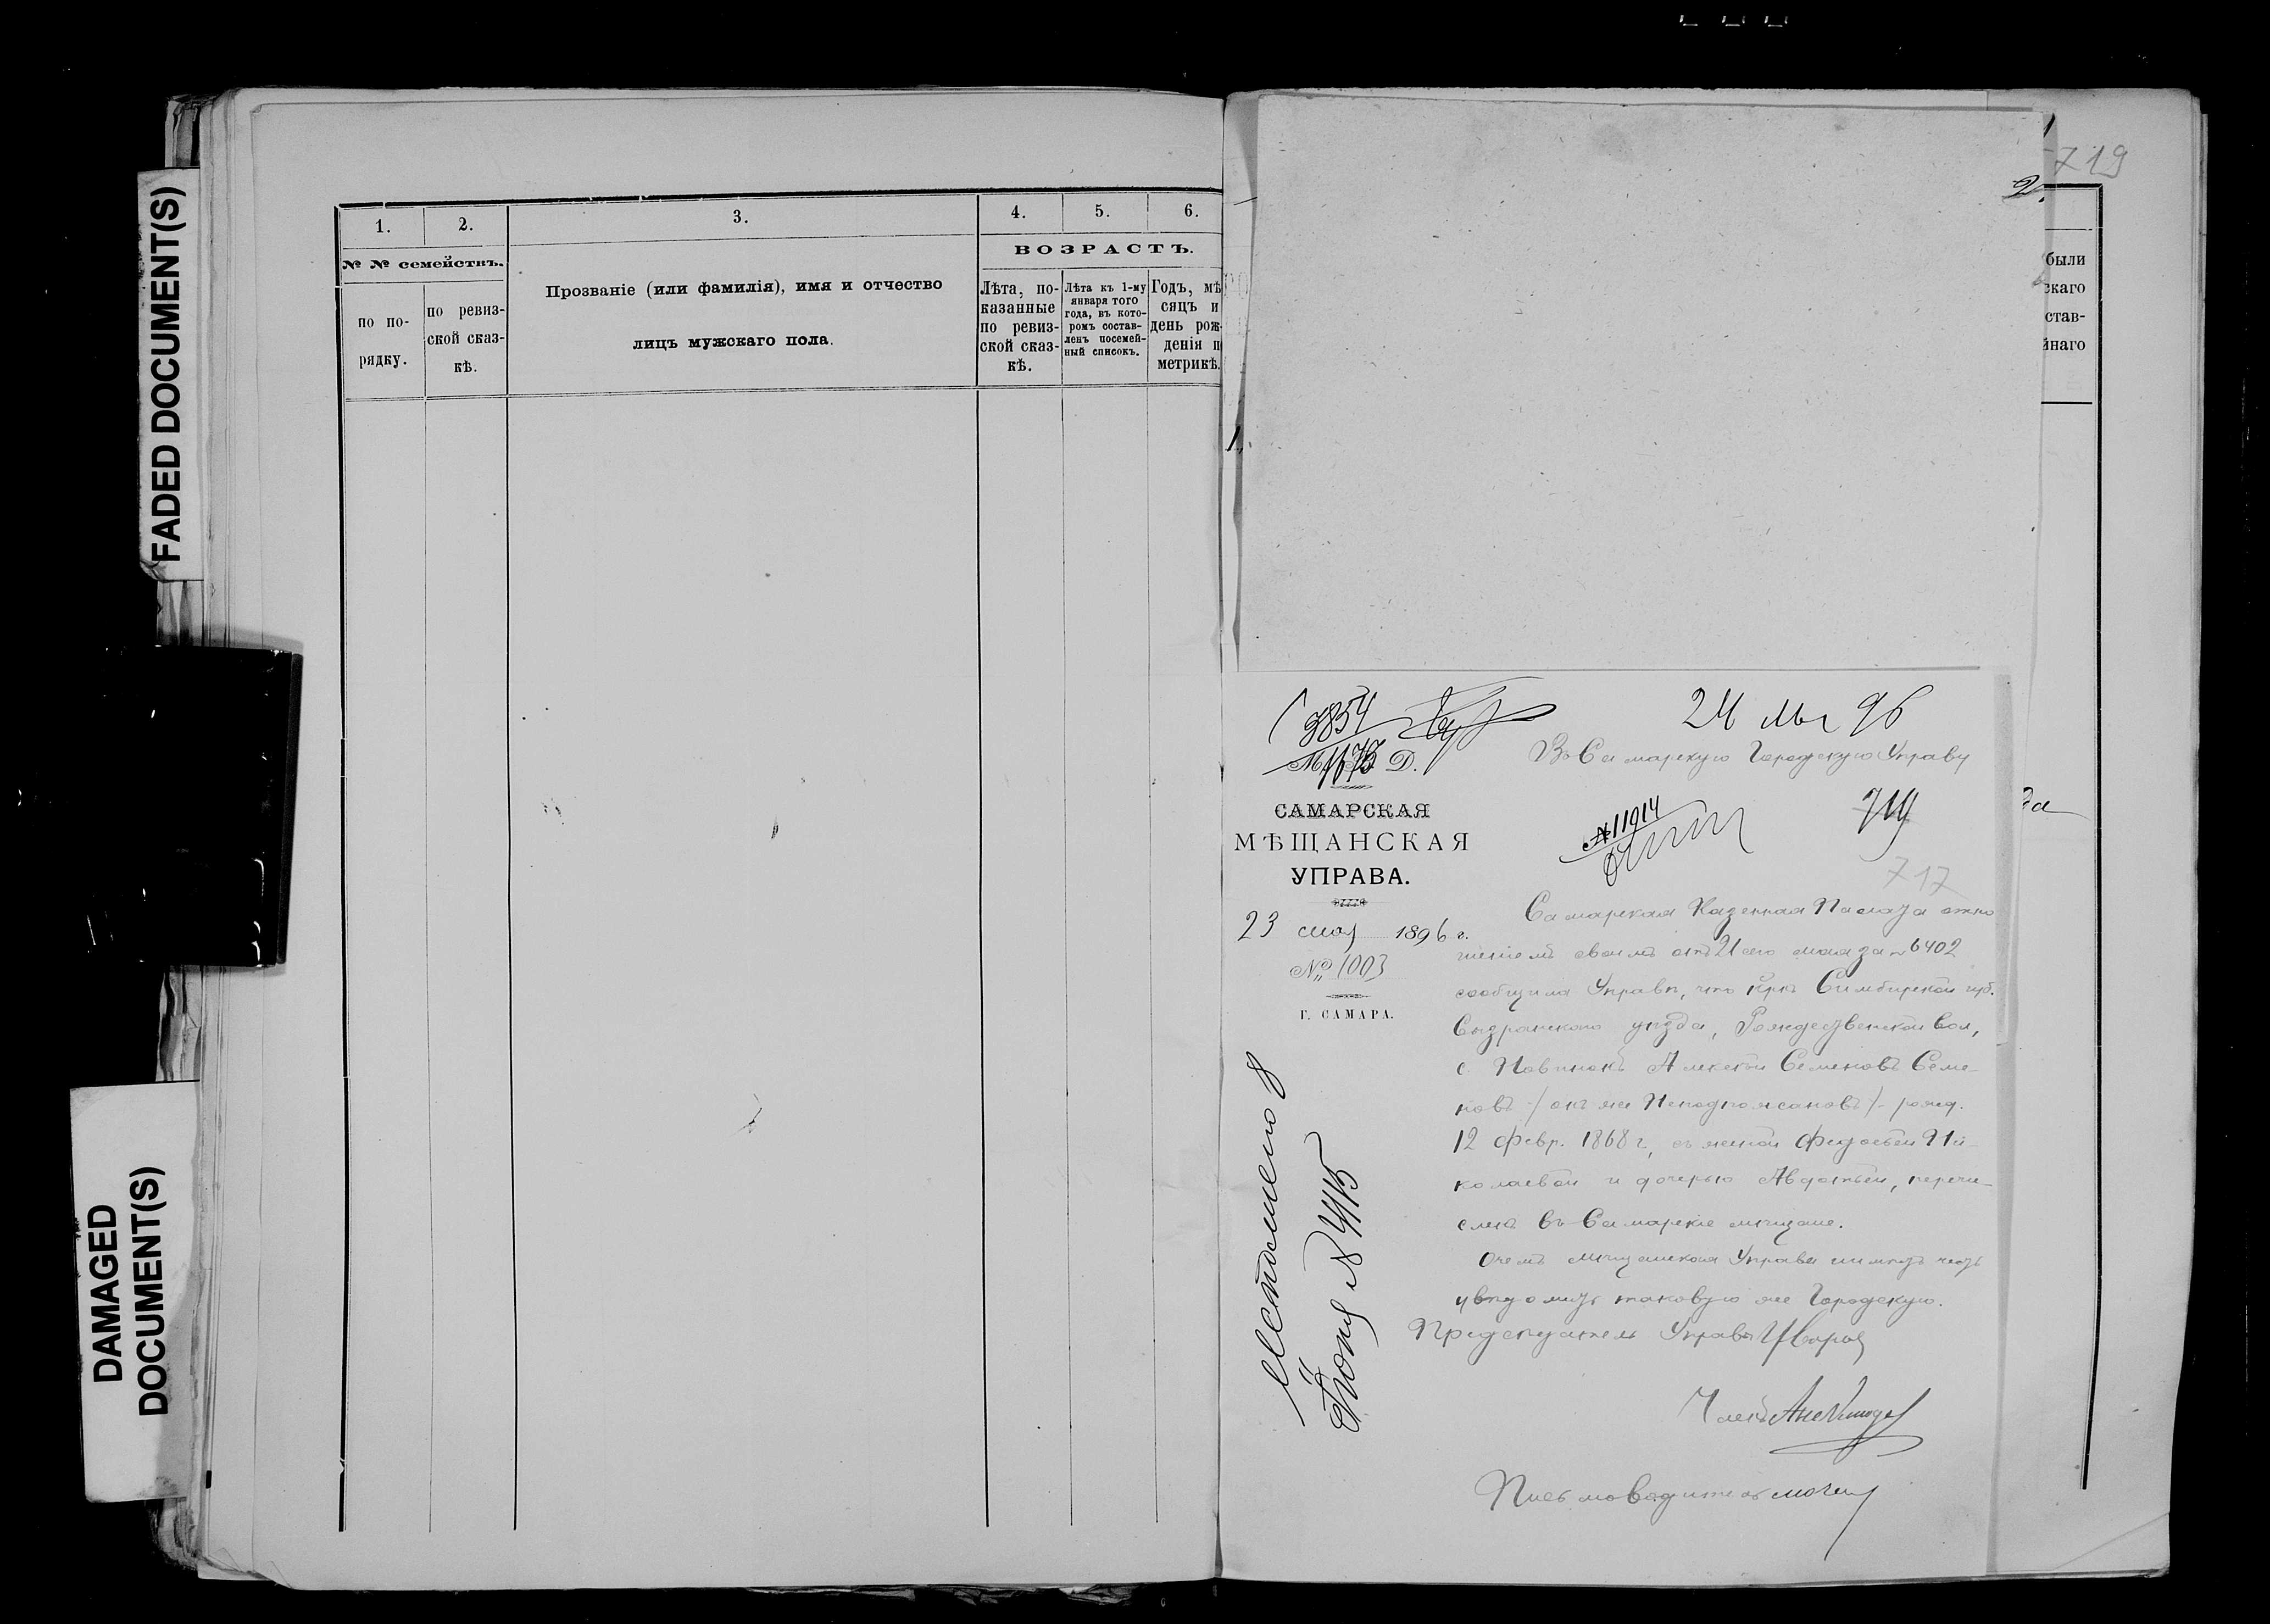 FADED DOCUMENT(S)
DAMAGED
DOCUMENT(S)
1.
2.
3.
4.
5.
6.
№ № семействъ.
ВОЗРАСТЪ.
по по-
рядку.
по ревиз-
ской сказ-
кѣ.
Прозваніе (или фамилія), имя и отчество
лицъ мужскаго пола.
Лѣта, по-
казанные
по ревиз-
ской сказ-
кѣ.
Лѣта къ 1-му
января того
года, въ кото-
ромъ состав-
ленъ посемей-
ный списокъ.
Годъ, мѣ
сяцъ и
день рож-
денія п
метрикѣ.
719
2.
были
скаго
став-
йнаго
1.
да
3854
М. В. Д.
САМАРСКАЯ
МѢЩАНСКАЯ
УПРАВА.
23 мая 1896 г.
№ 1003
Г. САМАРА.
24 Мая 96
Въ Самарскую Городскую Управу
№ 11914
719
717
Самарская Казенная Палата отно
шеніемъ своимъ отъ 21 сего мая за № 6402
сообщила Управѣ, что крн Симбирской губ.
Сызранскаго уѣзда, Рождественской вол,
с. Новинокъ Алексѣй Семеновъ Семе-
новъ /онъ же Неподпоясановъ/ рожд.
12 Февр. 1868 г, съ женой Федосьей Ни-
колаевой и дочерью Авдотьей, перечи-
сленъ въ Самарскіе мѣщане.
О чемъ мѣщанская Управа имѣетъ честь
увѣдомить таковую же Городскую.
Предсѣдатель Управы
Членъ
Письмоводитель